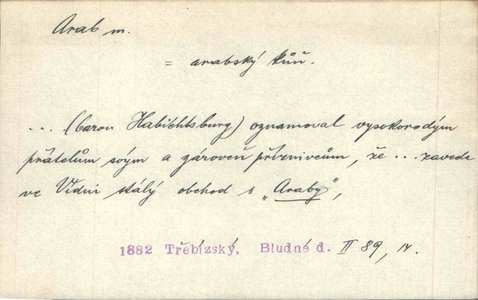 Arab m.
= arabský kůň.
... (baron Habichtsburg) oznamoval vysokorodým
přátelům svým a zároveň příznivcům, že ... zavede
ve Vídni stálý obchod s „Araby",
1882 Třebízský, Bludné d. II 89, IV.